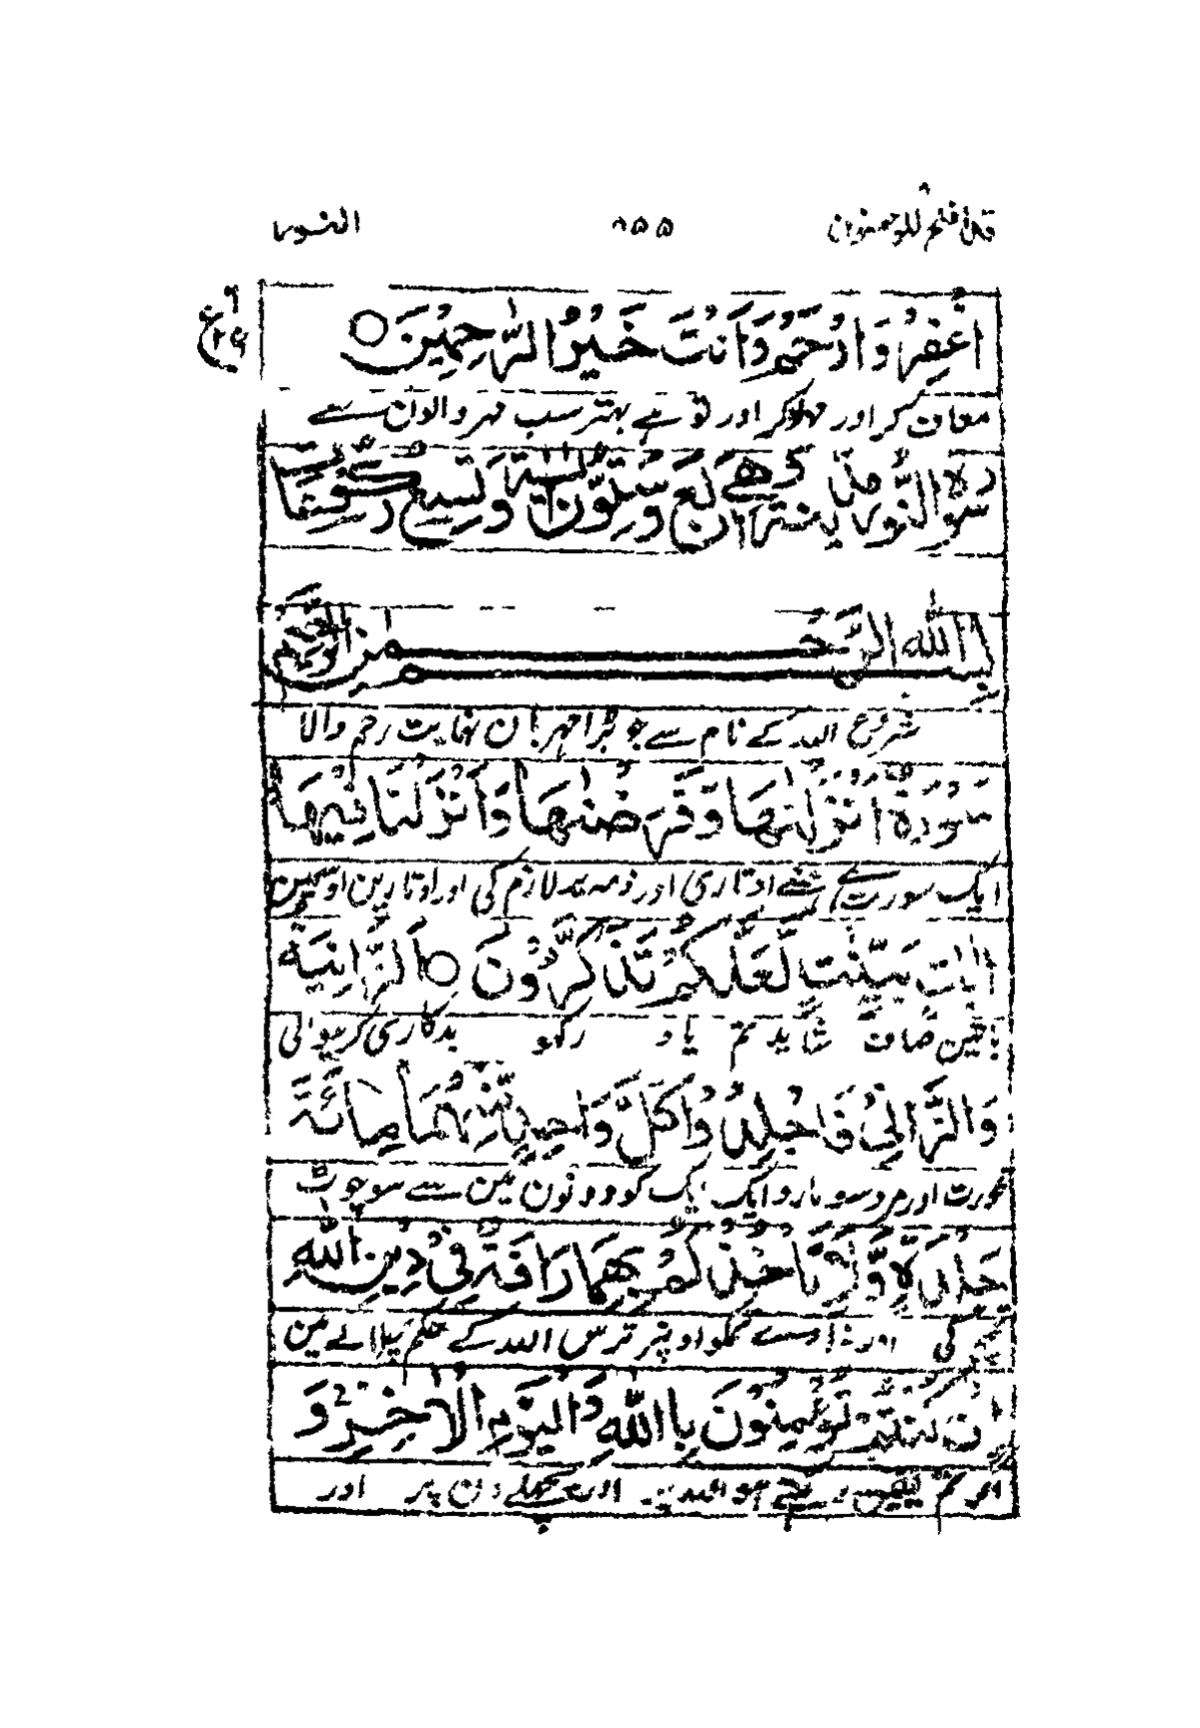 قد افلح المومنون ۵۵۸ النور
اغْفِرْ وَارْحَمْ وَاَنْتَ خَيْرُ الرّٰحِمِيْنَ ○
معاف کر اور مہر کر اور تو ہے بہتر سب مہر والون سے
سورة النور مدنية وهي اربع وستون اية وتسع ركوعات
بسم الله الرحمن الرحيم
شروع اللہ کے نام سے جو بڑا مہربان نہایت رحم والا
سُوْرَةٌ اَنْزَلْنٰهَا وَفَرَضْنٰهَا وَاَنْزَلْنَا فِيْهَا
ایک سورت ہے ہمنے اوتاری اور ذمہ پر لازم کی اور اوتارین اوسمین
اٰيٰتٍ بَيِّنٰتٍ لَّعَلَّكُمْ تَذَكَّرُوْنَ ○ اَلزَّانِيَةُ
باتین صاف شاید تم یاد رکھو بدکاری کرنیوالی
وَالزَّانِيْ فَاجْلِدُوْا كُلَّ وَاحِدٍ مِّنْهُمَا مِائَةَ
عورت اور مرد سو مارو ایک ایک کو دونون مین سے سو چوٹ
جَلْدَةٍ وَّلَا تَاْخُذْكُمْ بِهِمَا رَاْفَةٌ فِيْ دِيْنِ اللهِ
کی اور نہ آوے تمکو اونپر ترس اللہ کے حکم چلانے مین
اِنْ كُنْتُمْ تُؤْمِنُوْنَ بِاللهِ وَالْيَوْمِ الْاٰخِرِ وَ
اگر تم یقین رکھتے ہو اللہ پر اور پچھلے دن پر اور